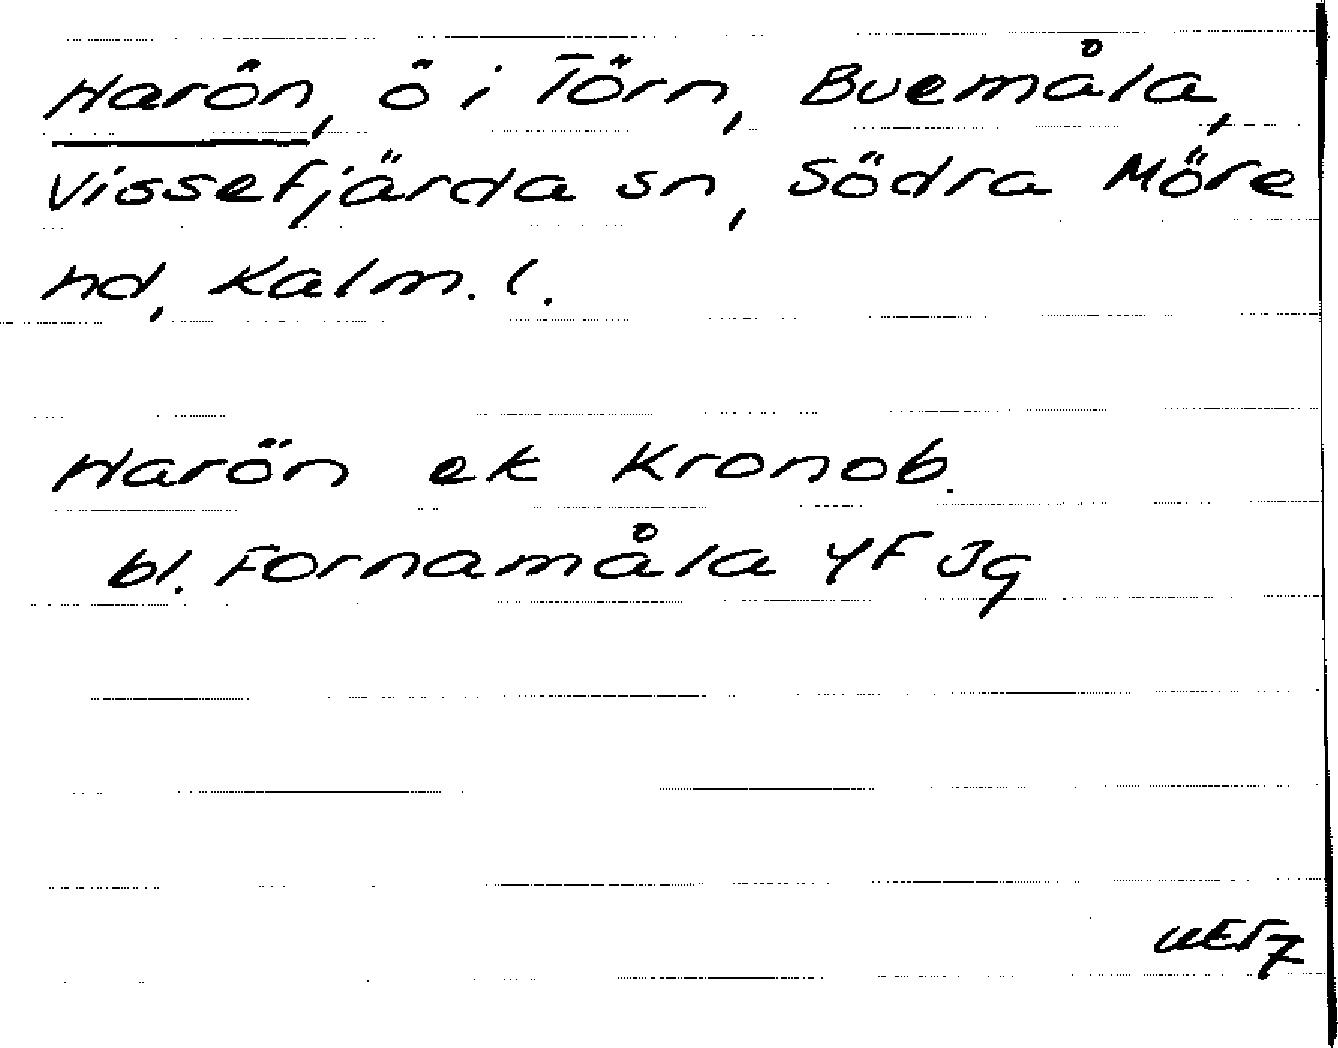 Harön, ö i Törn, Buemåla,
Vissefjärda sn, Södra Möre
hd, Kalm. l.
Harön ek Kronob.
bl. Fornamåla YF Jg